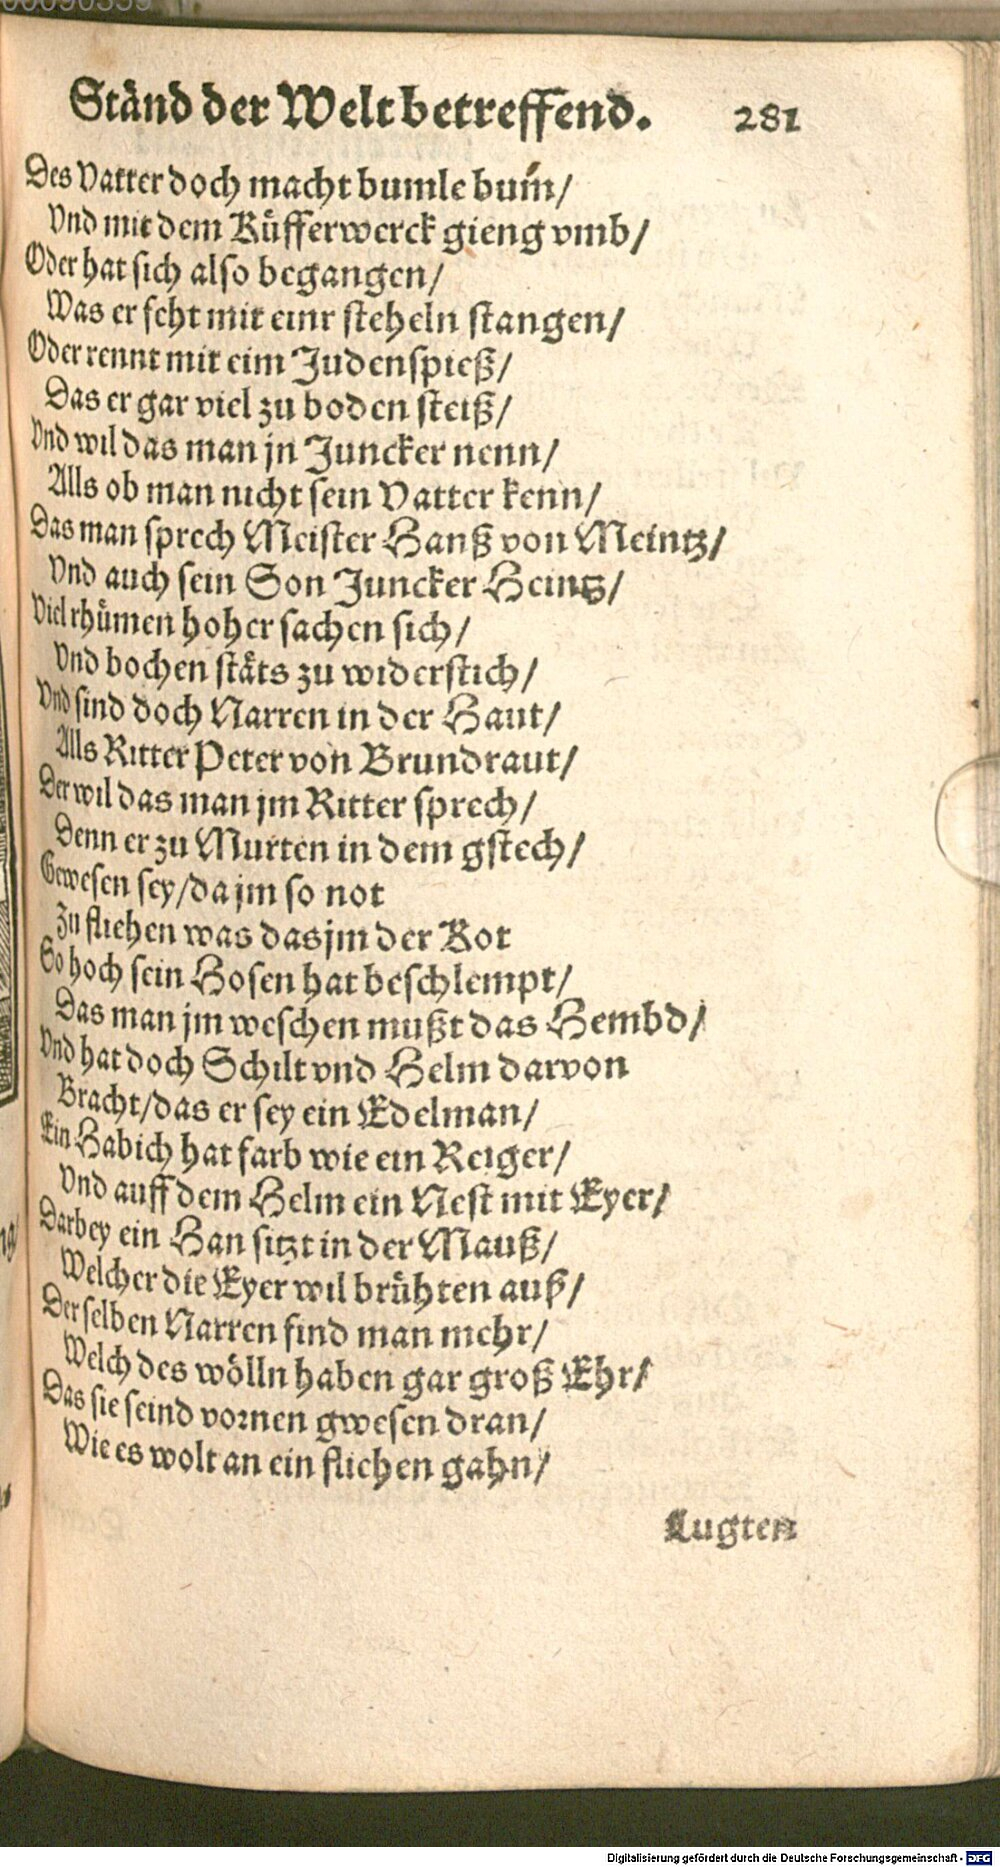 Ständ der Welt betreffend. 281
Des Vatter doch macht bumle bum̃/
Vnd mit dem Küfferwerck gieng vmb/
Oder hat sich also begangen/
Was er feht mit einr steheln stangen/
Oder rennt mit eim Judenspieß/
Das er gar viel zu boden stieß/
Vnd wil das man jn Juncker nenn/
Alls ob man nicht sein Vatter kenn/
Das man sprech Meister Hanß von Meintz/
Vnd auch sein Son Juncker Heintz/
Viel rhümen hoher sachen sich/
Vnd bochen stäts zu widerstich/
Vnd sind doch Narren in der Haut/
Alls Ritter Peter von Brundraut/
Der wil das man jm Ritter sprech/
Denn er zu Murten in dem gstech/
Gewesen sey/da jm so not
Zu fliehen was das jm der Kot
So hoch sein Hosen hat beschlempt/
Das man jm weschen mußt das Hembd/
Vnd hat doch Schilt vnd Helm darvon
Bracht/das er sey ein Edelman/
Ein Habich hat farb wie ein Reiger/
Vnd auff dem Helm ein Nest mit Eyer/
Darbey ein Han sitzt in der Mauß/
Welcher die Eyer wil brühten auß/
Derselben Narren find man mehr/
Welch des wölln haben gar groß Ehr/
Das sie seind vornen gwesen dran/
Wie es wolt an ein fliehen gahn/
Lugten
Digitalisierung gefördert durch die Deutsche Forschungsgemeinschaft - DFG